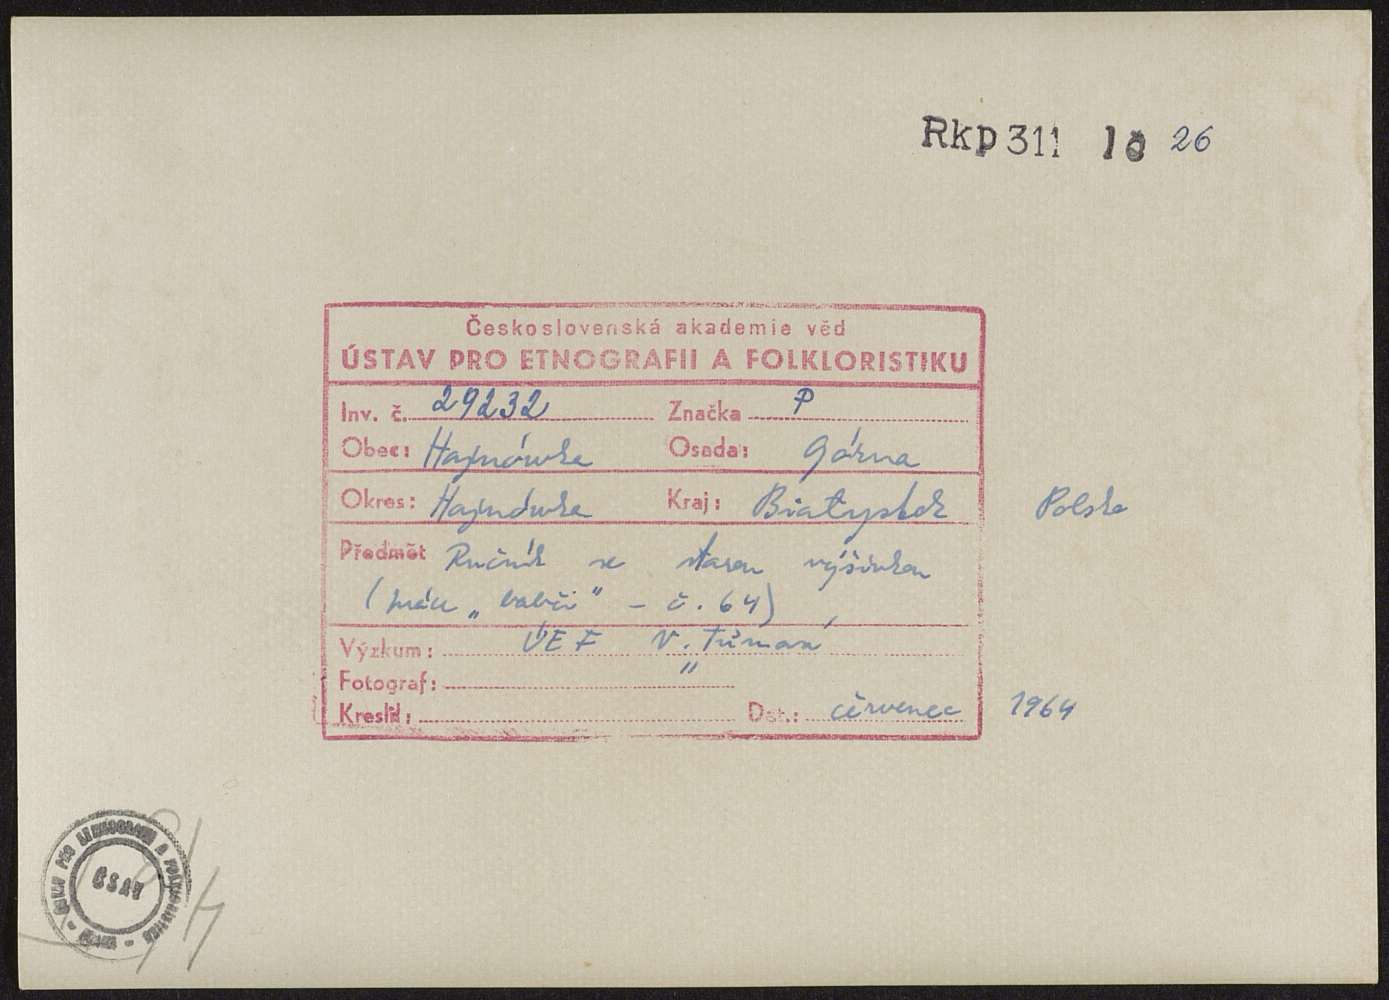 Rkp 311 10 26
Československá akademie věd
ÚSTAV PRO ETNOGRAFII A FOLKLORISTIKU
Inv. č. 29232 Značka P
Obec: Hajnówka Osada: Górna
Okres: Hajnówka Kraj: Białystok Polsko
Předmět Ručník se starou výšivkou
( „babči" – č. 64)
Výzkum: ÚEF V. Tůmová
Fotograf: "
Kreslil: Dat.: červenec 1964
ÚSTAV PRO ETNOGRAFII A FOLKLORISTIKU
ČSAV